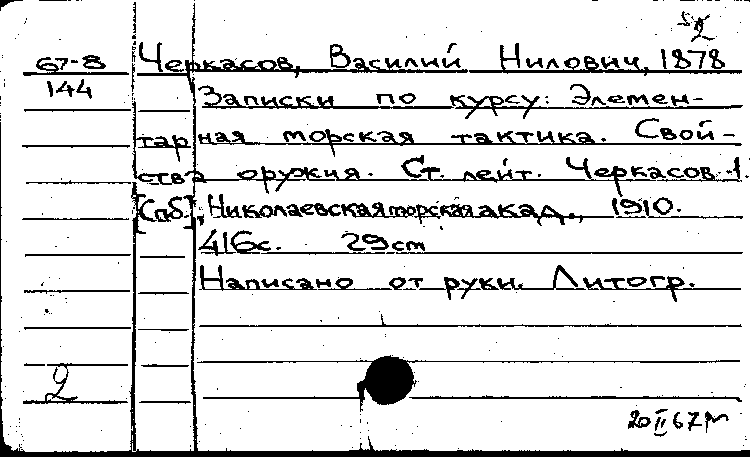 2
67-8 Черкасов, Василий Нилович, 1878
144 Записки по курсу: Элемен-
тарная морская тактика. Свой-
ства оружия. Ст. лейт. Черкасов-1.
[Спб.], Николаевская морская акад., 1910.
416с. 29cm
Написано от руки. Литогр.
2
20 II 67